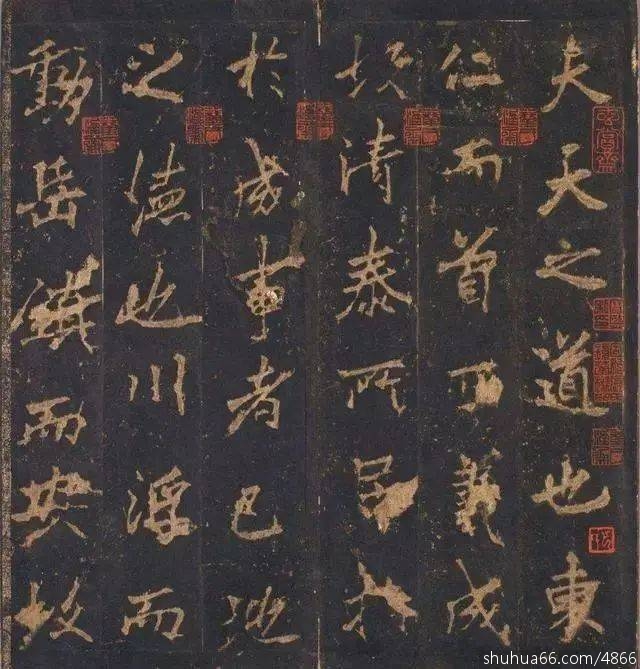 夫天之道也東
仁而首西義成
故清泰所居指
於成事者已地
之德也川浮而
動岳鎮而安故
shuhua66.com/4866